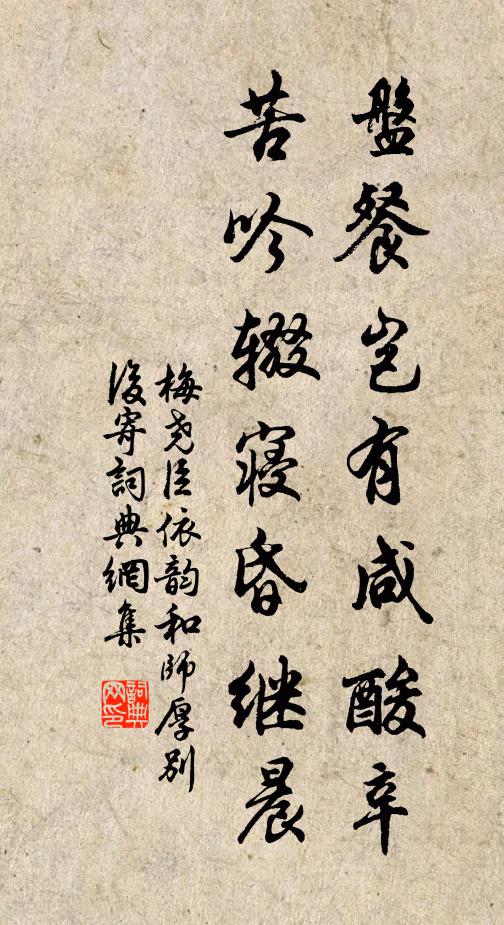 盤餐岂有咸酸辛
苦吟辍寝昏继晨
梅尧臣依韵和师厚别
后寄詞典網集
詞典網印